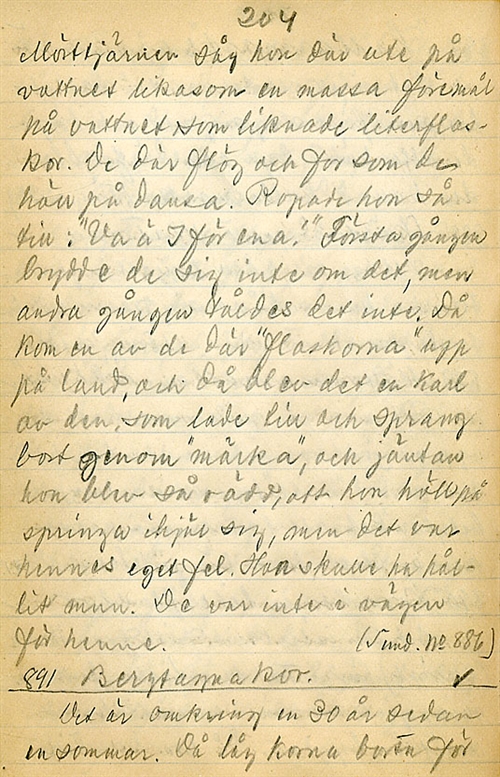 204
Mörttjärnen såg hon där ute på
vattnet likasom en massa föremål
på vattnet, som liknade literflas-
kor. De där flög och for som de
höll på dansa. Ropade hon så
till: "Va ä I för ena!" Första gången
brydde de sig inte om det, men
andra gången tåldes det inte. Då
kom en av de där "flaskorna" upp
på land, och då blev det en karl
av den, som lade till och sprang
bort genom "märka", och jäntan
hon blev så rädd, att hon höll på
springa ihjäl sig, men det var
hennes eget fel. Hon skulle ha hål-
lit mun. De var inte i vägen
för henne. (Sund. No 886)
891 Bergtagna kor. ✓
Det är omkring en 30 år sedan
en sommar. Då låg korna borta för